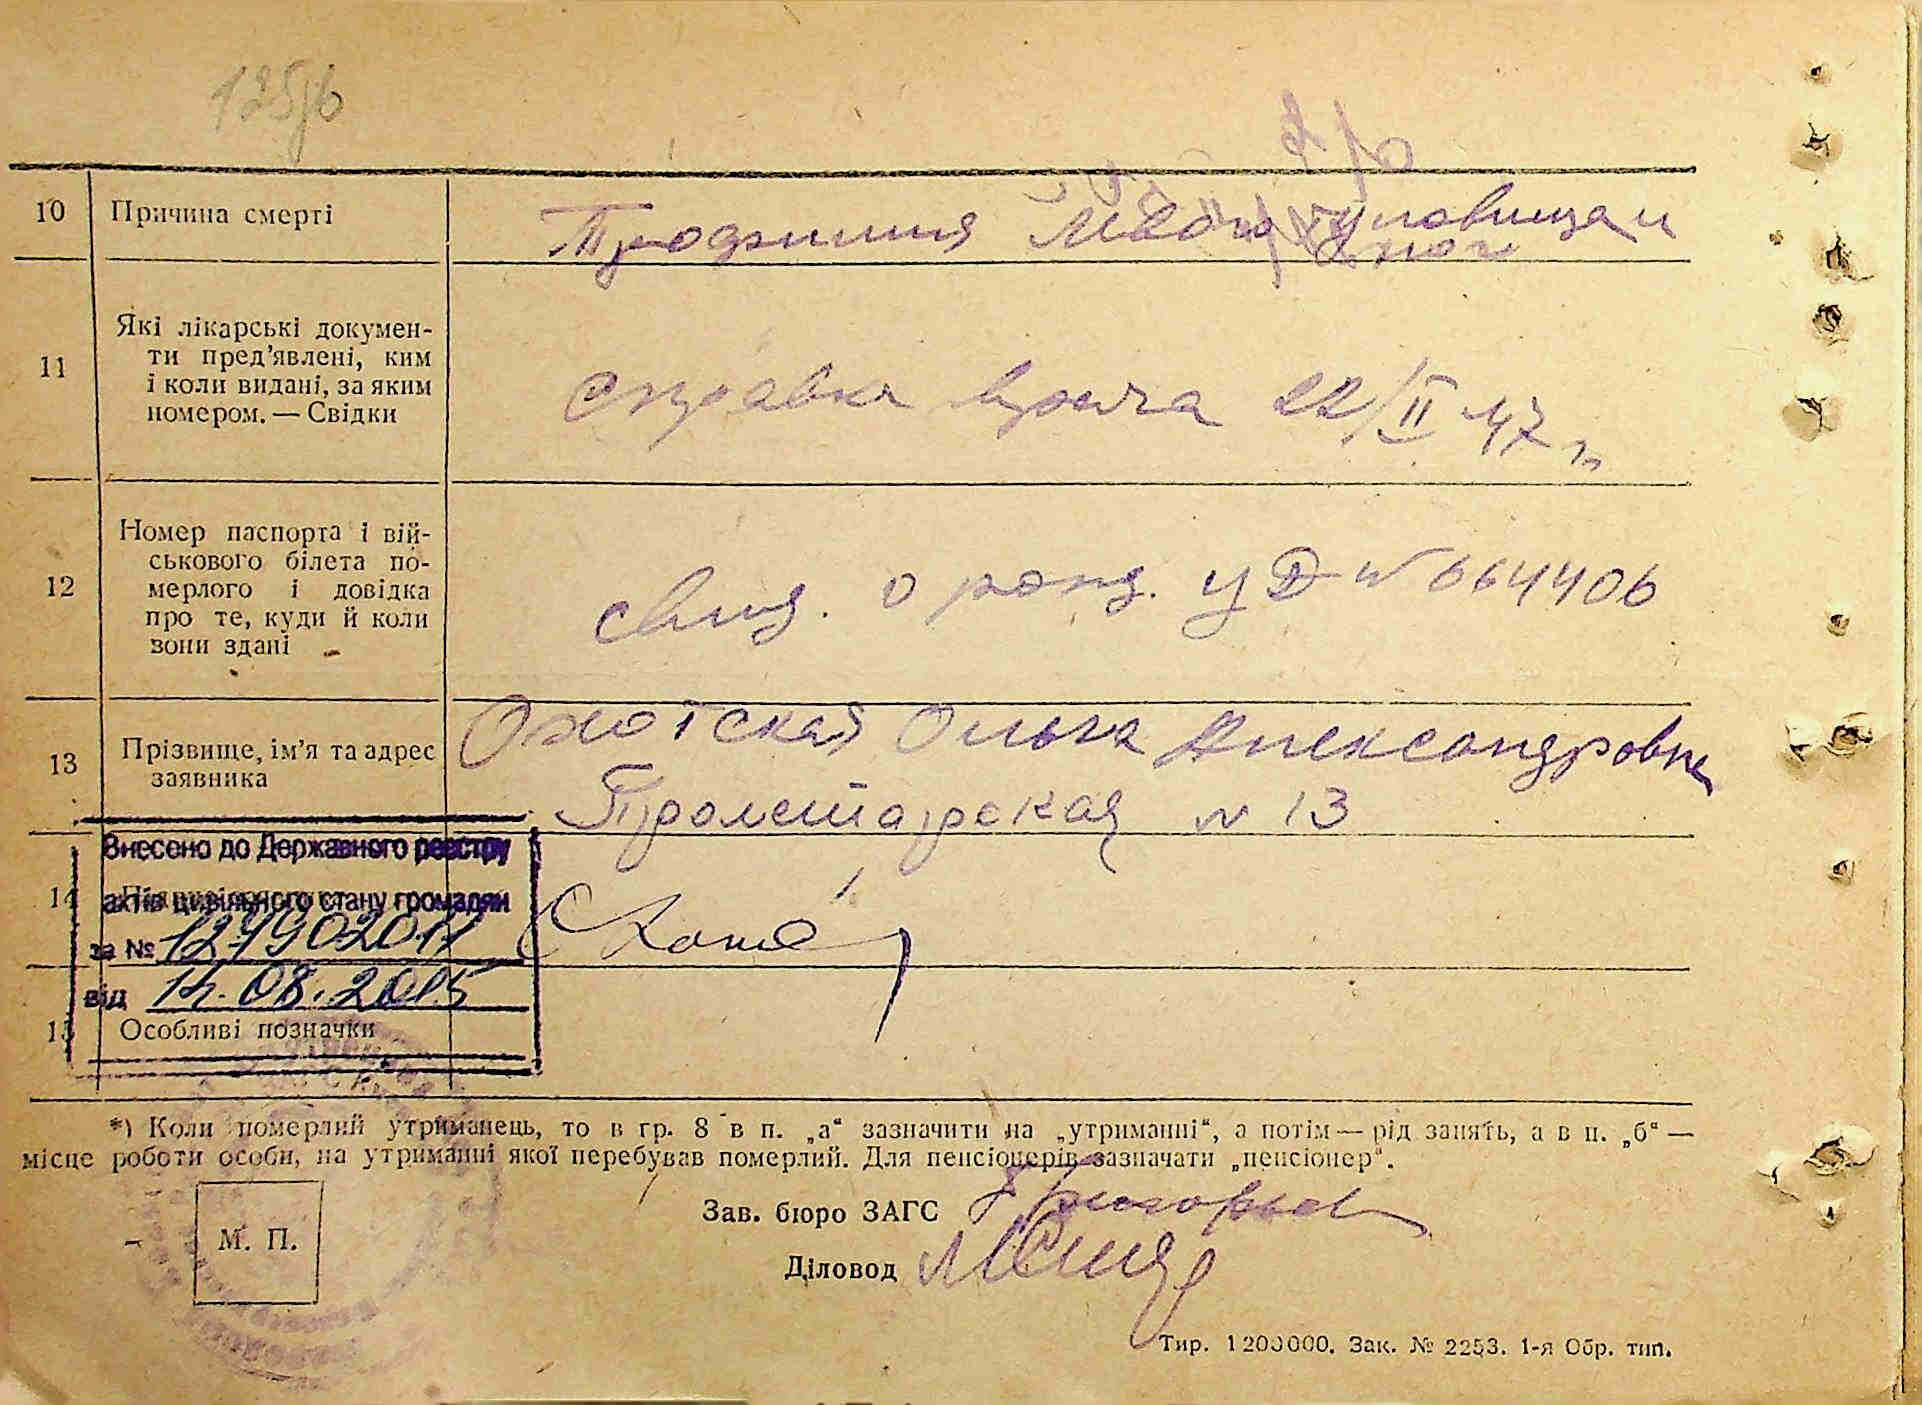 10 Причина смерті
туловища и
ног
11 Які лікарські докумен-
ти пред’явлені, ким
і коли видані, за яким
номером. — Свідки
справка врача 22/II 47 г.
12 Номер паспорта і вій-
ськового білета по-
мерлого і довідка
про те, куди й коли
вони здані
свид. о рожд. УД № 664406
13 Прізвище, ім’я та адрес
заявника
Охотская Ольга Александровна
Пролетарская № 13
Внесено до Державного реєстру
14
актів цивільного стану громадян
за №
від 14.08.2015
15 Особливі позначки
*) Коли померлий утриманець, то в гр. 8 в п. „а“ зазначити на „утриманні“, а потім — рід занять, а в п. „б“ —
місце роботи особи, на утриманні якої перебував померлий. Для пенсіонерів зазначати „пенсіонер“.
Зав. бюро ЗАГС
М. П.
Діловод
Тир. 1200000. Зак. № 2253. 1-я Обр. тип.